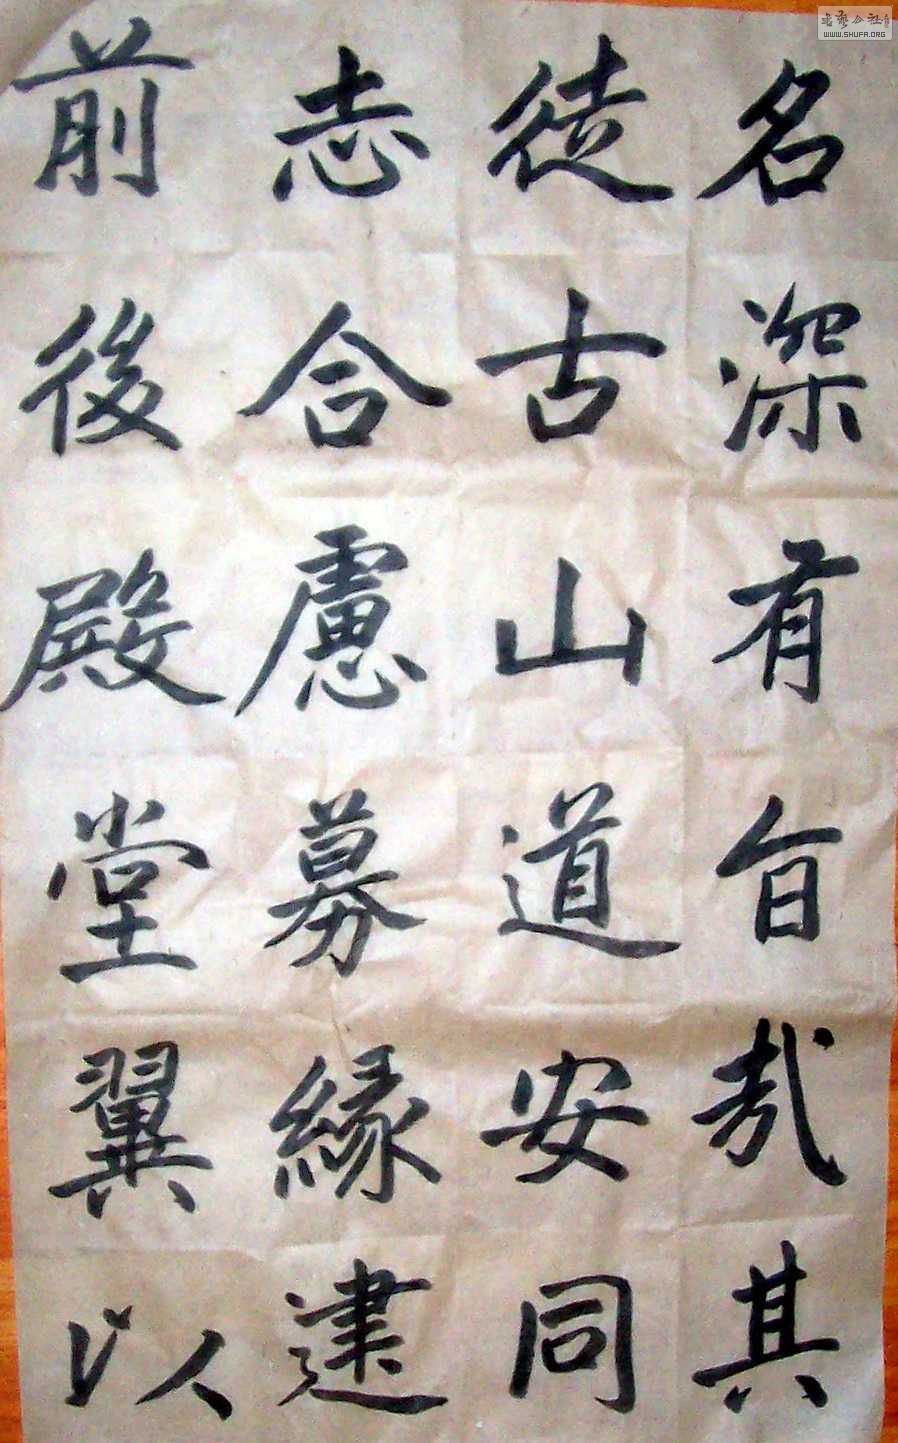 名深有旨哉其
徒古山道安同
志合慮募緣建
前後殿堂翼以
书艺公社
WWW.SHUFA.ORG